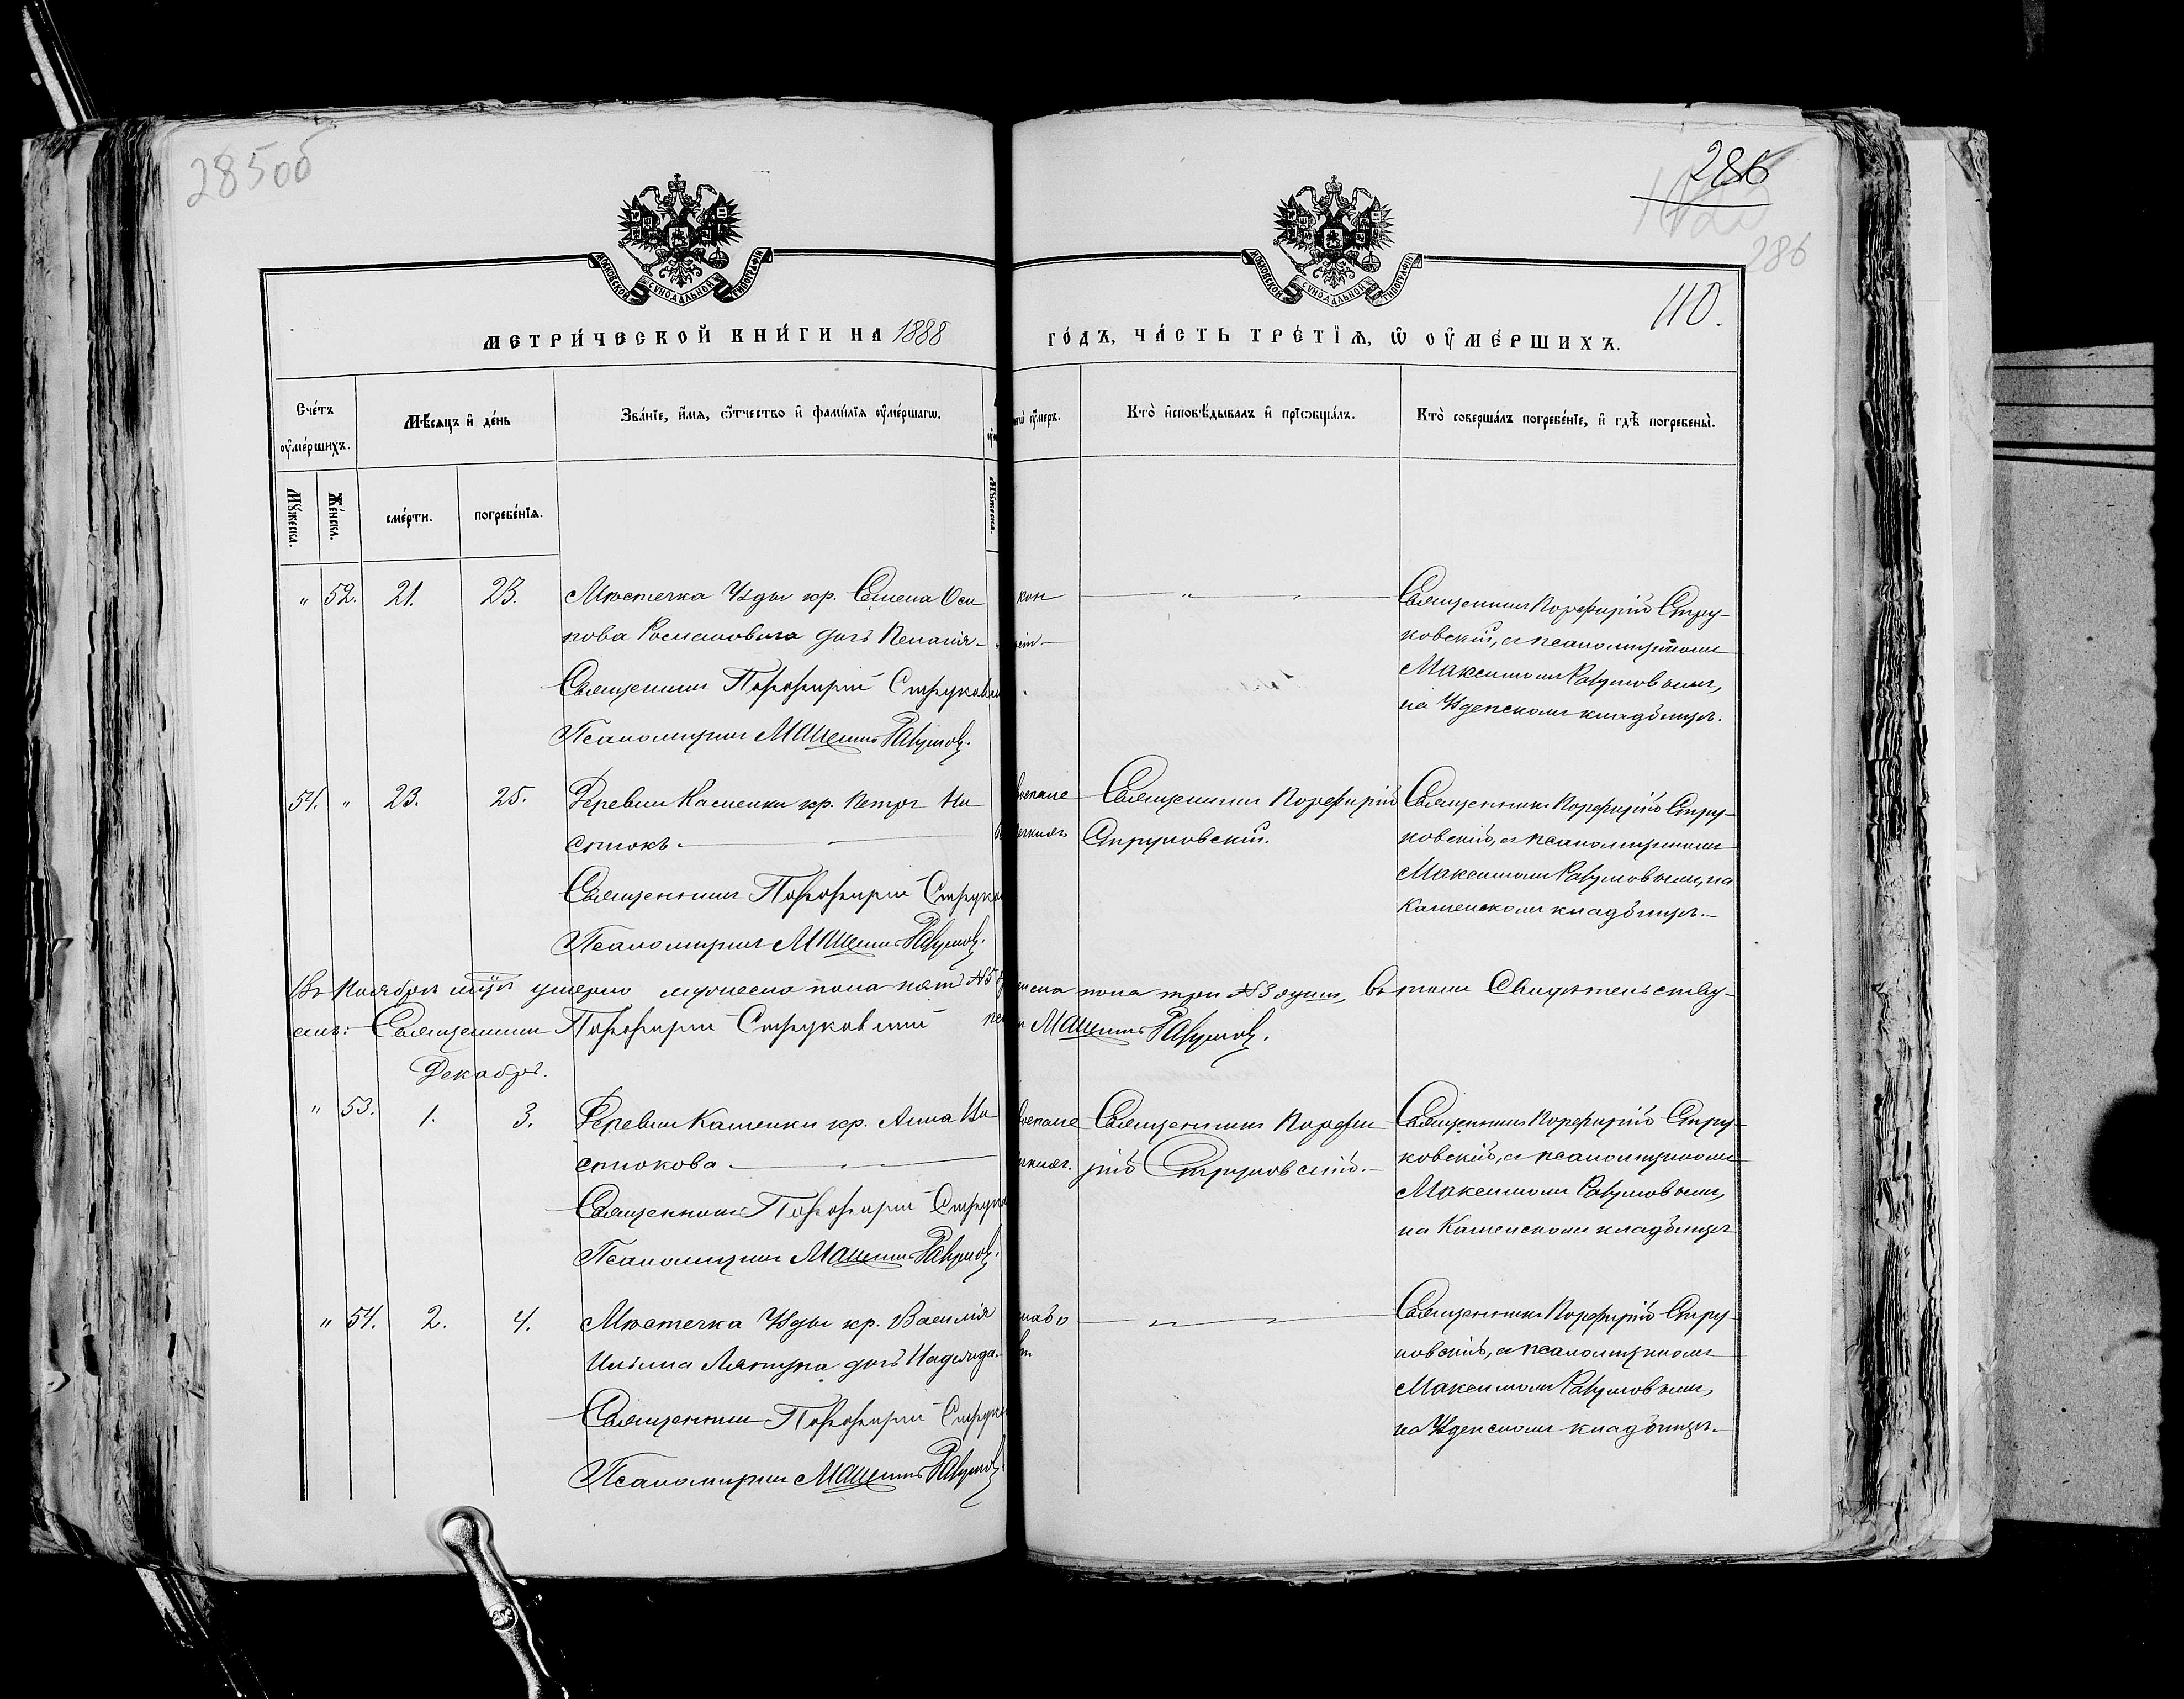 285об
286
286
110.
МОСКОВСКОЙ СѴНОДАЛЬНОЙ ТИПОГРАФІИ
МОСКОВСКОЙ СѴНОДАЛЬНОЙ ТИПОГРАФІИ
МЕТРИ́ЧЕСКОЙ КНИ́ГИ НА 1888
ГО́ДЪ, ЧА́СТЬ ТРЕ́ТІѦ, Ѡ ОУ҆МЕ́РШИХЪ.
Сче́тъ оу҆ме́ршихъ.
Мѣ́сяцъ и҆ де́нь
Зва́нїе, и҆́мя, ѻ҆́тчество и҆ фами́лїя оу҆ме́ршагѡ.
оу҆́меръ.
Кто̀ и҆сповѣ́дывалъ и҆ прїѡбща́лъ.
Кто̀ соверша́лъ погребе́нїе, и҆ гдѣ̀ погребены̀.
Мꙋ́жеска.
Же́нска.
сме́рти.
погребе́нїя.
Мꙋ́жеска.
" 52. 21. 23.
Мѣстечка Узды кр. Семена Оси
пова Романовича дочь Пелагія
Священникъ Порфирій Струковскі
Псаломщикъ Максимъ Разумовъ.
Священникъ Порфирій Стру-
ковскій, съ псаломщикомъ
Максимомъ Разумовымъ,
на Узденскомъ кладбищѣ.
51. " 23. 25.
Деревни Каменки кр. Петръ Ки
стюкъ.
Священникъ Порфирій Струко
Псаломщикъ Максимъ Разумовъ.
Священникъ Порфирій
Струковскій.
Священникъ Порфирій Стру-
ковскій, съ псаломщикомъ
Максимомъ Разумовымъ, на
Каменскомъ кладбищѣ.
Въ Ноябрѣ мцѣ умерло мужеска пола пять №5 нска пола три №3 души, въ томъ Свидѣтельству-
емъ: Священникъ Порфирій Струковскій Максимъ Разумовъ.
Декабрь.
" 53. 1. 3.
Деревни Каменки кр. Анна Ки
стюкова
Священникъ Порфирій Струко
Псаломщикъ Максимъ Разумовъ.
Священникъ Порфи
рій Струковскій.
Священникъ Порфирій Стру-
ковскій, съ псаломщикомъ
Максимомъ Разумовымъ,
на Каменскомъ кладбищѣ
" 54. 2. 4.
Мѣстечка Узды кр. Василія
Ильина дочь Надежда.
Священникъ Порфирій Струко
Псаломщикъ Максимъ Разумовъ
Священникъ Порфирій Стру-
ковскій, съ псаломщикомъ
Максимомъ Разумовымъ,
на Узденскомъ кладбищѣ.